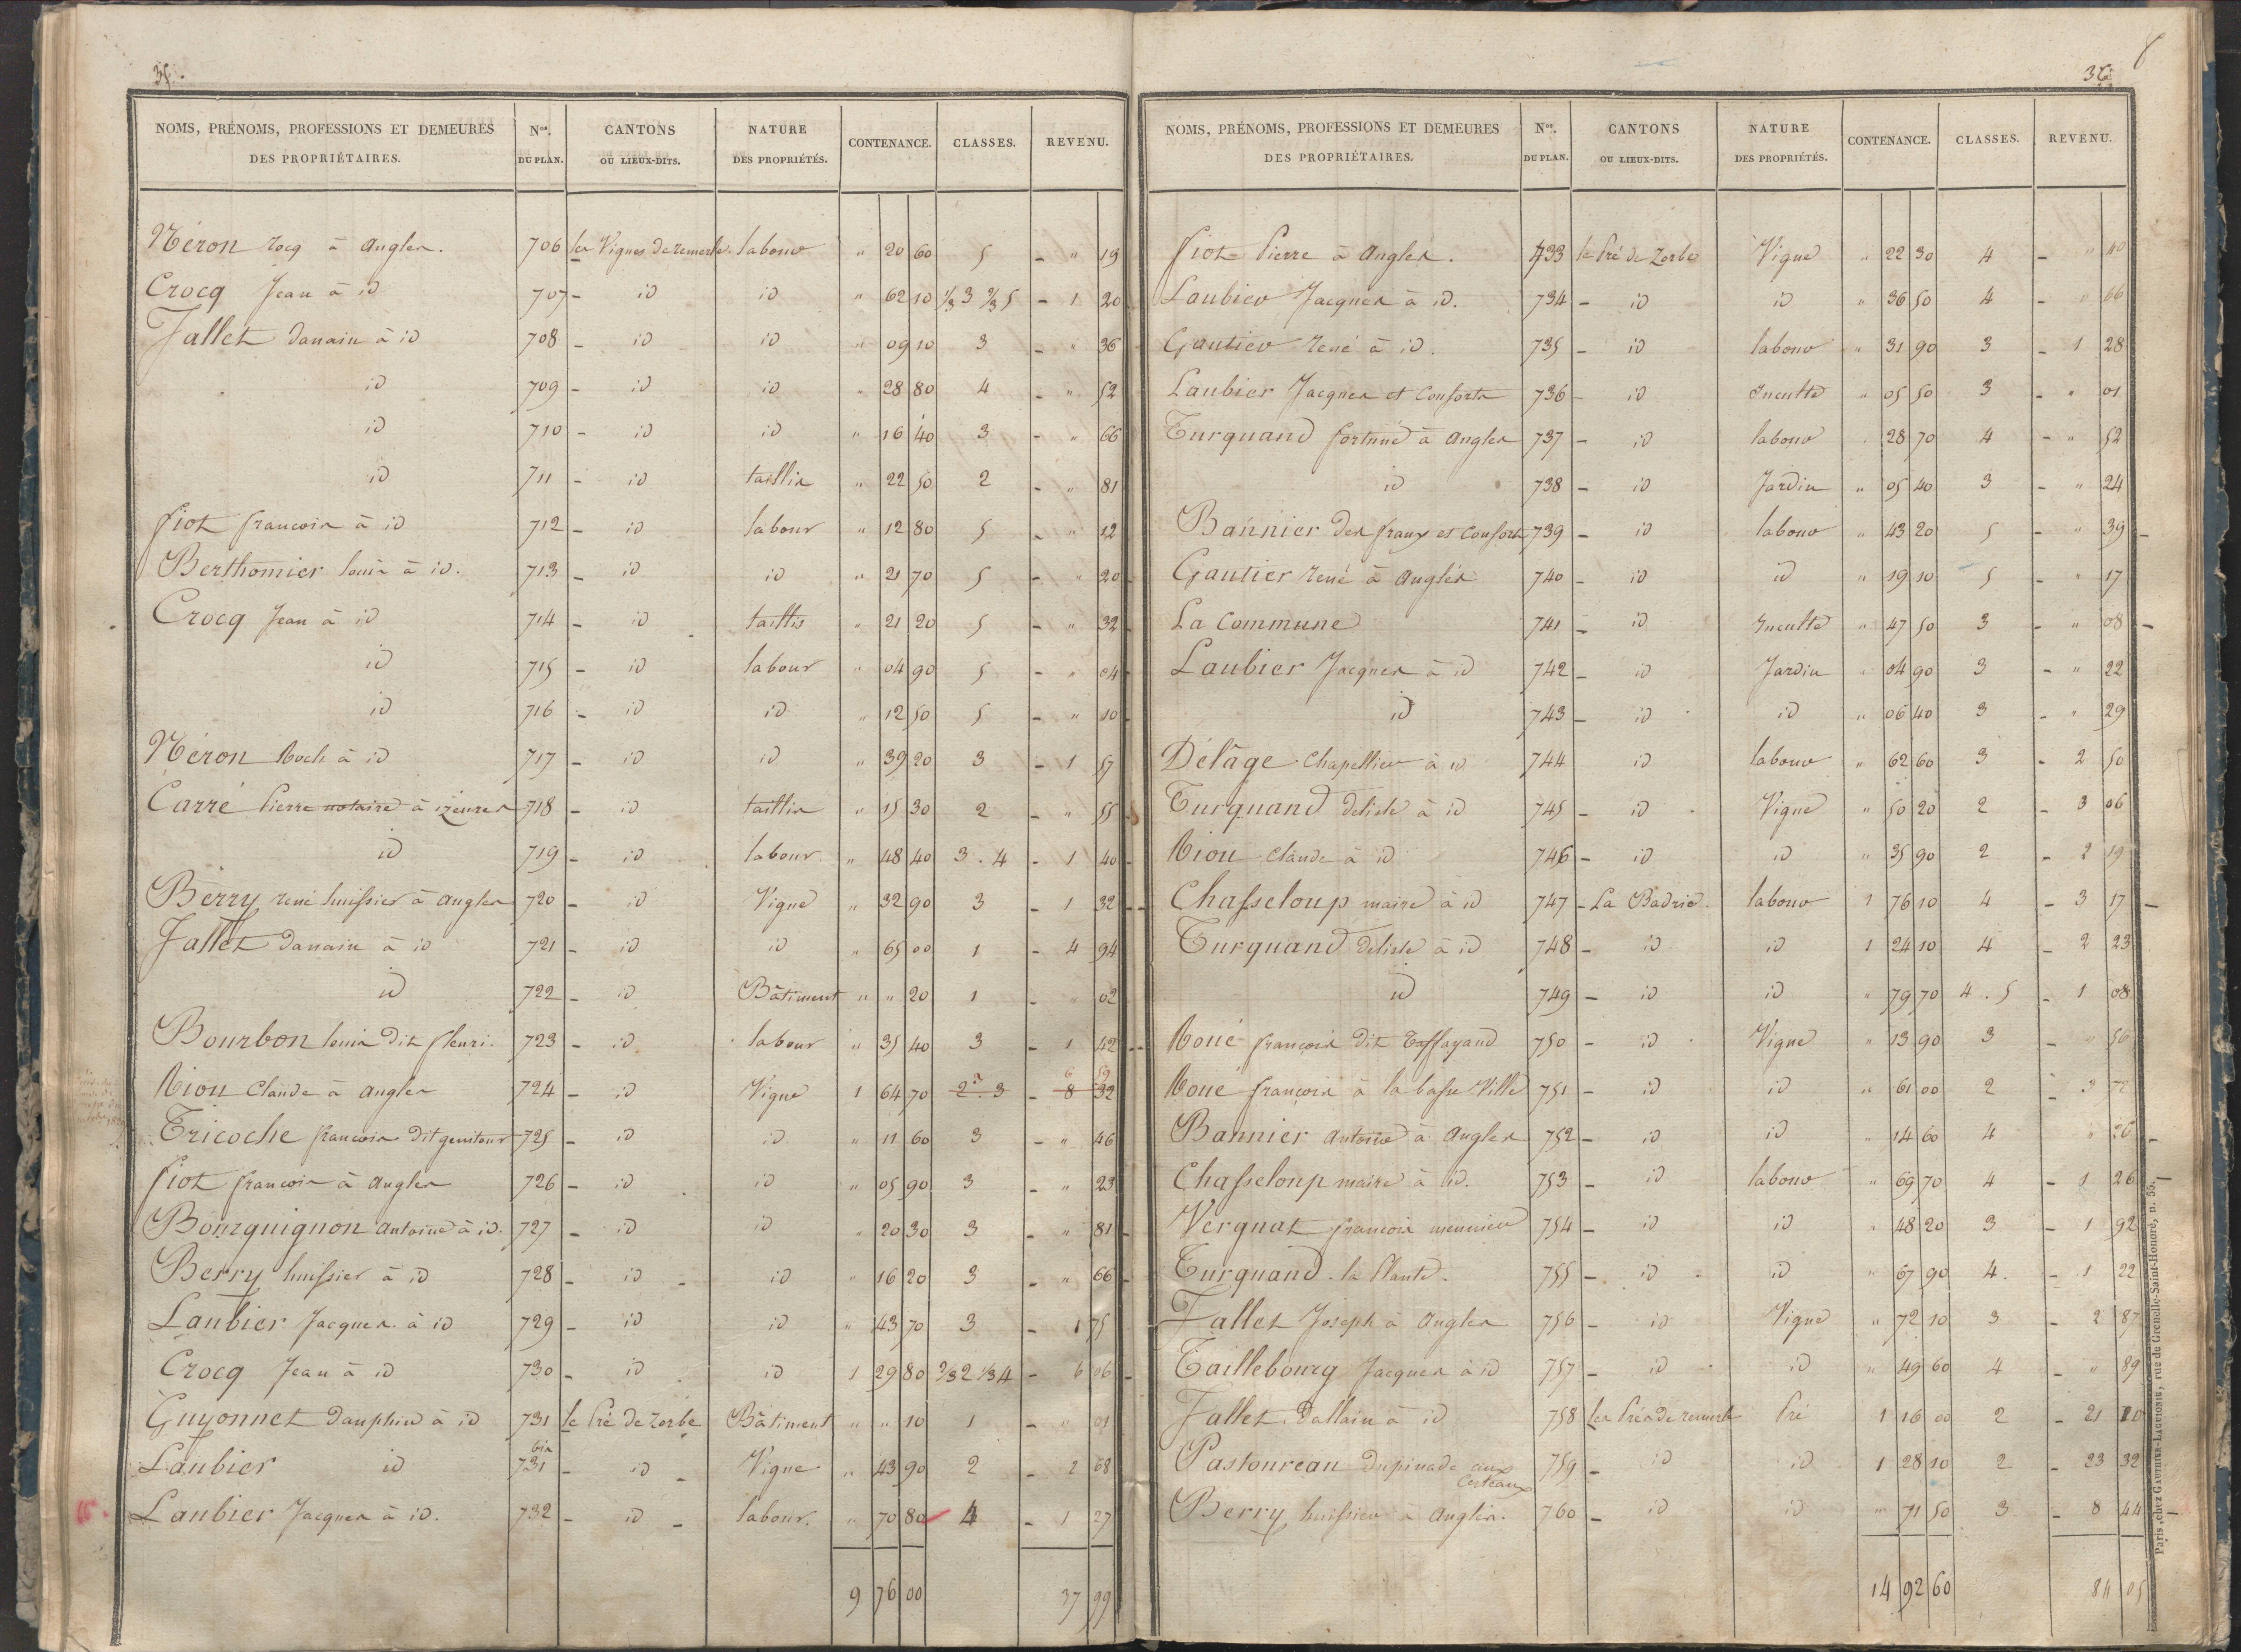 35.
NOMS, PRÉNOMS, PROFESSIONS ET DEMEURES DES PROPRIÉTAIRES. Nos. DU PLAN. CANTONS OU LIEUX-DITS. NATURE DES PROPRIÉTÉS. CONTENANCE. CLASSES. REVENU.
Néron rocq à angles. 706 les Vignes de remerle. labour " 20 60 5 - " 19
Crocq Jean à id 707 - id id " 62 10 1/3 3 2/3 5 - 1 20
Jallet danain à id 708 - id id " 09 10 3 - " 36
id 709 - id id " 28 80 4 - " 52
id 710 - id id " 16 40 3 - " 66
id 711 - id taillis " 22 50 2 - " 81
fiot francois à id 712 - id labour " 12 80 5 - " 12
Berthomier louis à id. 713 - id id " 21 70 5 - " 20
Crocq Jean à id 714 - id taillis " 21 20 5 - " 32
id 715 - id labour " 04 90 5 - " 04
id 716 - id id " 12 50 5 - " 10
Néron Roch à id 717 - id id " 39 20 3 - 1 57
Carré Pierre notaire à izeures 718 - id taillis " 15 30 2 - " 55
id 719 - id labour " 48 40 3 . 4 - 1 40
Berry rené huissier à angles 720 - id Vigne " 32 90 3 - 1 32
Jallet danain à id 721 - id id " 65 00 1 - 4 94
id 722 - id Bâtiment " " 20 1 - " 02
Bourbon louis dit fleuri. 723 - id labour " 35 40 3 - 1 42
Rion Claude à angles 724 - id Vigne 1 64 70 2. 3 - 8 32
6 59
Tricoche francois dit geniteur 725 - id id " 11 60 3 - " 46
fiot francois à angles 726 - id id " 05 90 3 - " 23
Bourguignon antoine à id. 727 - id id " 20 30 3 - " 81
Berry huissier à id 728 - id id " 16 20 3 - " 66
Laubier Jacques à id 729 - id id " 43 70 3 - 1 75
Crocq Jean à id 730 - id id 1 29 80 2/3 2 1/3 4 - 6 06
Guyonnet dauphin à id 731 le Pré de Zerbe Bâtiment " " 10 1 - " 01
Laubier id 731 bis - id Vigne " 43 90 2 - 2 68
Laubier Jacques à id. 732 - id labour. " 70 80 4 - 1 27
9 76 00 37 99
36
NOMS, PRÉNOMS, PROFESSIONS ET DEMEURES DES PROPRIÉTAIRES. Nos. DU PLAN. CANTONS OU LIEUX-DITS. NATURE DES PROPRIÉTÉS. CONTENANCE. CLASSES. REVENU.
fiot Pierre à angles. 733 le Pré de Zerbe Vigne " 22 30 4 - " 40
Laubier Jacques à id. 734 - id id " 36 50 4 - " 66
Gautier rené à id. 735 - id labour " 31 90 3 - 1 28
Laubier Jacques et Consorts 736 - id Inculte " 05 50 3 - " 01
Turquand fortuné à angles 737 - id labour " 28 70 4 - " 52
id 738 - id Jardin " 05 40 3 - " 24
Bannier des fraux et consort 739 - id labour " 43 20 5 - " 39
Gautier rené à angles 740 - id id " 19 10 5 - " 17
La Commune 741 - id Inculte " 47 50 3 - " 08
Laubier Jacques à id 742 - id Jardin " 04 90 3 - " 22
id 743 - id id " 06 40 3 - " 29
Délâge Chapellier à id 744 id labour " 62 60 3 - 2 50
Turquand delisle à id 745 - id Vigne " 50 20 2 - 3 06
Rion claude à id 746 - id id " 35 90 2 - 2 19
Chasseloup maire à id 747 - La Badrie. labour 1 76 10 4 - 3 17
Turquand delisle à id 748 - id id 1 24 10 4 - 2 23
id 749 - id id " 79 70 4 . 5 - 1 08
Roué françois dit Taffayaud 750 - id Vigne " 13 90 3 - " 56
Roué françois à la basse Ville 751 - id id " 61 00 2 - 3 72
Bannier antoine à angles 752 - id id " 14 60 4 " 26
Chasseloup maire à id. 753 - id labour " 69 70 4 - 1 26
Vergnat francois meunier 754 - id id " 48 20 3 - 1 92
Turquand la Plante. 755 - id id " 67 90 4. - 1 22
Jallet Joseph à angles 756 - id Vigne " 72 10 3 - 2 87
Taillebourg Jacques à id 757 - id id " 49 60 4 - " 89
Jallet Dallain à id 758 les Prés de remerle Pré 1 16 00 2 - 21 10
Pastoureau dupinade aux Certeaux 759 - id id 1 28 10 2 - 23 32
Berry huissier à angles. 760 - id id " 71 50 3 - 8 44
14 92 60 84 05
Paris, chez GAUTHIER-LAGUIONIE, rue de Grenelle-Saint-Honoré, n. 55.